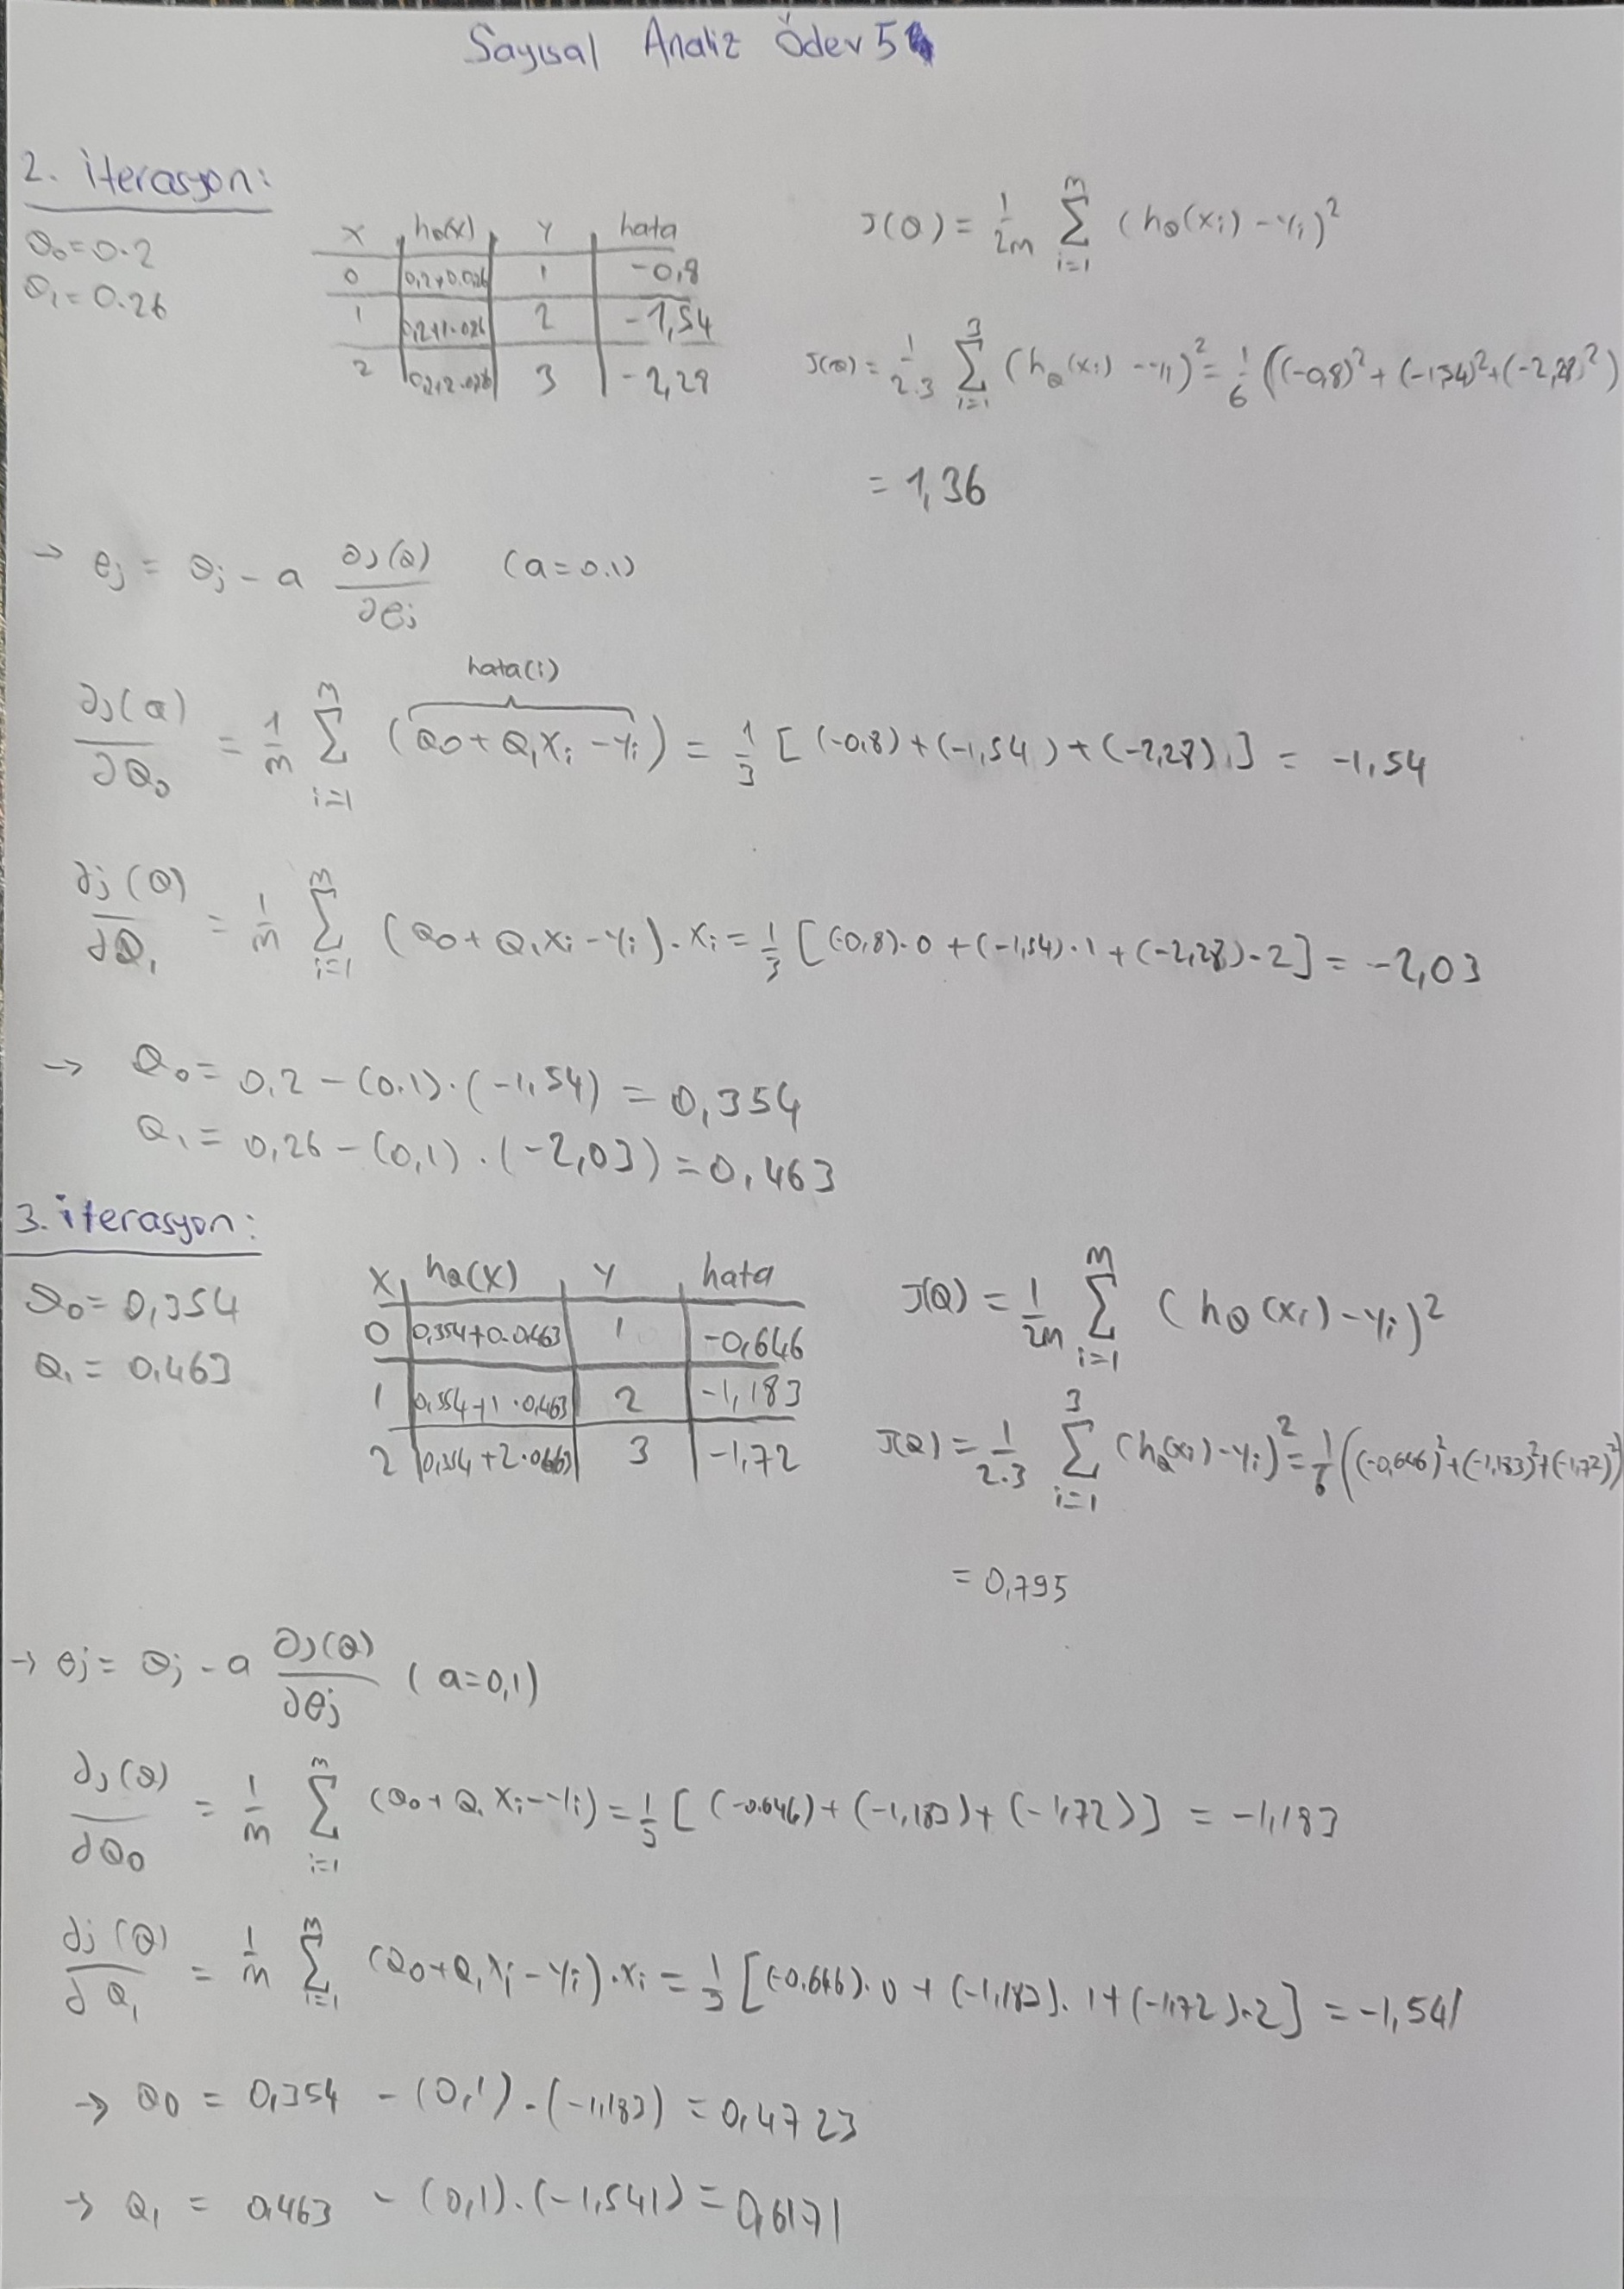 Sayısal Analiz Ödev 5
2. iterasyon:
θ₀=0.2
θ₁=0.26
x | hθ(x) | y | hata
0 | 0,2+0.0,26 | 1 | -0,8
1 | 0,2+1.026 | 2 | -1,54
2 | 0,2+2.026 | 3 | -2,28
J(θ) = 1/2m Σ_{i=1}^{m} (hθ(xi) - yi)²
J(θ) = 1/2.3 Σ_{i=1}^{3} (hθ(xi) - yi)² = 1/6 ((-0,8)² + (-1,54)² + (-2,28)²)
= 1,36
→ θj = θj - a ∂J(θ)/∂θj (a=0.1)
hata(i)
∂J(θ)/∂θ₀ = 1/m Σ_{i=1}^{m} (θ₀+θ₁xi - yi) = 1/3 [(-0,8)+(-1,54)+(-2,28)] = -1,54
∂j(θ)/∂θ₁ = 1/m Σ_{i=1}^{m} (θ₀+θ₁xi - yi).xi = 1/3 [(-0,8).0 + (-1,54).1 + (-2,28).2] = -2,03
→ θ₀ = 0,2 - (0.1).(-1,54) = 0,354
θ₁ = 0,26 - (0,1).(-2,03) = 0,463
3. iterasyon:
θ₀ = 0,354
θ₁ = 0,463
x | hθ(x) | y | hata
0 | 0,354+0.0,463 | 1 | -0,646
1 | 0,354+1.0,463 | 2 | -1,183
2 | 0,354+2.0,463 | 3 | -1,72
J(θ) = 1/2m Σ_{i=1}^{m} (hθ(xi) - yi)²
J(θ) = 1/2.3 Σ_{i=1}^{3} (hθ(xi) - yi)² = 1/6 ((-0,646)² + (-1,183)² + (-1,72)²)
= 0,795
→ θj = θj - a ∂J(θ)/∂θj (a=0,1)
∂J(θ)/∂θ₀ = 1/m Σ_{i=1}^{m} (θ₀+θ₁xi - yi) = 1/3 [(-0.646)+(-1,183)+(-1,72)] = -1,183
∂j(θ)/∂θ₁ = 1/m Σ_{i=1}^{m} (θ₀+θ₁xi - yi).xi = 1/3 [(-0.646).0 + (-1,183).1 + (-1,72).2] = -1,541
→ θ₀ = 0,354 - (0,1).(-1,183) = 0,4723
→ θ₁ = 0,463 - (0,1).(-1,541) = 0,6171